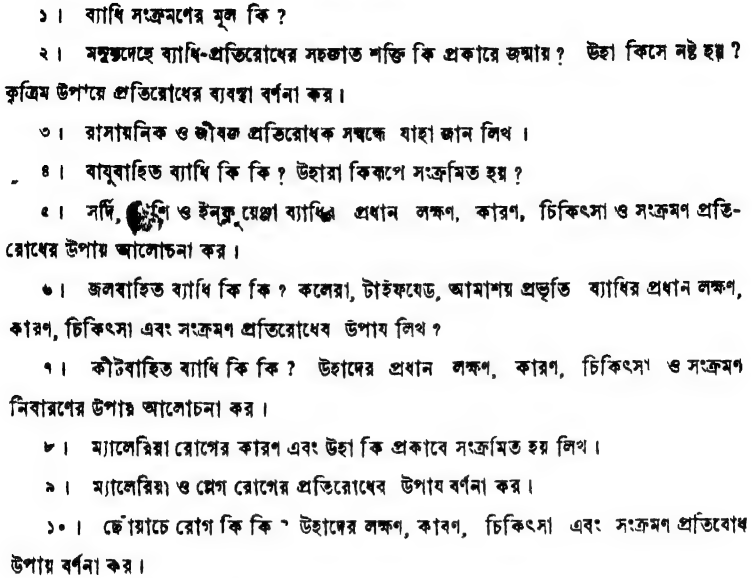 ১। ব্যাধি সংক্রমণের মূল কি ?
২। মনুষ্যদেহে ব্যাধি-প্রতিরোধের সহজাত শক্তি কি প্রকারে জন্মায় ? উহা কিসে নষ্ট হয় ?
কৃত্রিম উপায়ে প্রতিরোধের ব্যবস্থা বর্ণনা কর।
৩। রাসায়নিক ও জীবজ প্রতিরোধক সম্বন্ধে যাহা জান লিখ ।
৪। বায়ুবাহিত ব্যাধি কি কি ? উহারা কিরূপে সংক্রমিত হয় ?
৫। সর্দি, ও ইনফ্লুয়েঞ্জা ব্যাধির প্রধান লক্ষণ, কারণ, চিকিৎসা ও সংক্রমণ প্রতি-
রোধের উপায় আলোচনা কর ।
৬। জলবাহিত ব্যাধি কি কি ? কলেরা, টাইফযেড, আমাশয় প্রভৃতি ব্যাধির প্রধান লক্ষণ,
কারণ, চিকিৎসা এবং সংক্রমণ প্রতিরোধেব উপায লিখ ?
৭। কীটবাহিত ব্যাধি কি কি ? উহাদের প্রধান লক্ষণ, কারণ, চিকিৎসা ও সংক্রমণ
নিবারণের উপায় আলোচনা কর ।
৮। ম্যালেরিয়া রোগের কারণ এবং উহা কি প্রকাবে সংক্রমিত হয় লিখ ।
৯। ম্যালেরিয়া ও প্লেগ রোগের প্রতিরোধেব উপায বর্ণনা কর ।
১০। ছোঁয়াচে রোগ কি কি ? উহাদের লক্ষণ, কাবণ, চিকিৎসা এবং সংক্রমণ প্রতিবোধ
উপায় বর্ণনা কর ।